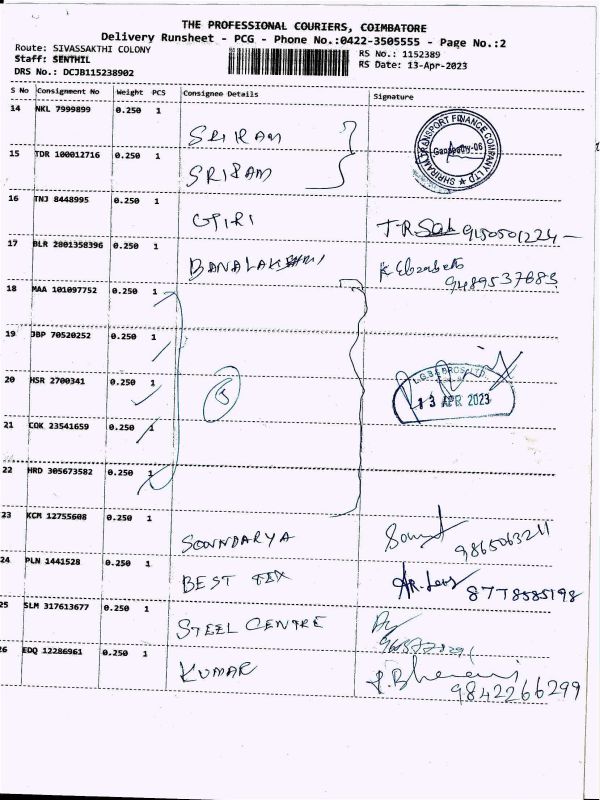 THE PROFESSIONAL COURIERS, COIMBATORE
Delivery Runsheet - PCG - Phone No.:0422-3505555 - Page No.:2
Route: SIVASSAKTHI COLONY
RS No.: 1152389
Staff: SENTHIL
RS Date: 13-Apr-2023
DRS No.: DCJB115238902
S No Consignment No Weight PCS Consignee Details Signature
14 NKL 7999899 0.250 1
SRIRAM
SHRIRAM TRANSPORT FINANCE COMPANY LTD
Ganapathy-06
15 TDR 100012716 0.250 1
SRIRAM
16 TNJ 8448995 0.250 1
GIRI T.R 9150501224
17 BLR 2801358396 0.250 1
BANALAKSHMI K Elizabeth
9489537683
18 MAA 101097752 0.250 1
19 JBP 70520252 0.250 1
20 HSR 2700341 0.250 1
5
L.G.B & BROS. LTD.
13 APR 2023
21 COK 23541659 0.250 1
22 HRD 305673582 0.250 1
23 KCM 12755608 0.250 1
SOWNDARYA 9865063211
24 PLN 1441528 0.250 1
BEST TEX 8778585198
25 SLM 317613677 0.250 1
STEEL CENTRE
26 EDQ 12286961 0.250 1
KUMAR 9842266299